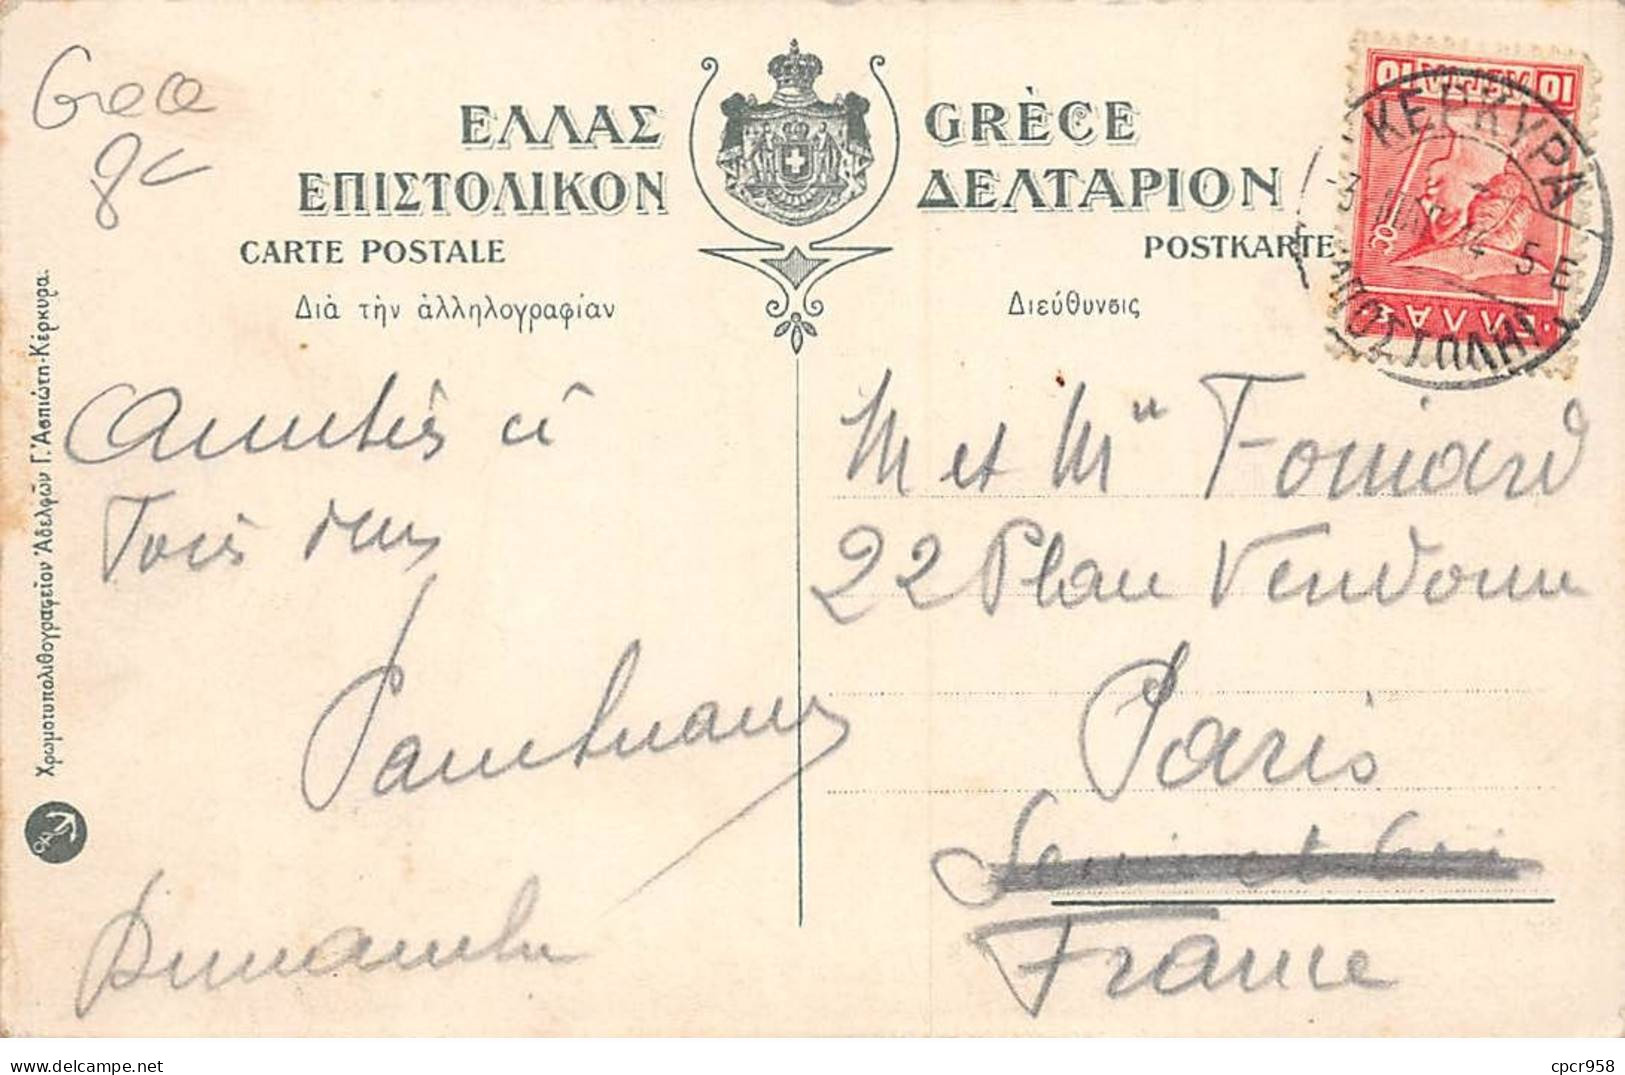 Grece
gc
ΕΛΛΑΣ
GRÈCE
ΕΠΙΣΤΟΛΙΚΟΝ
ΔΕΛΤΑΡΙΟΝ
CARTE POSTALE
POSTKARTE
Διὰ τὴν ἀλληλογραφίαν
Διεύθυνσις
10 ΛΕΠΤΑ 10
ΕΛΛΑΣ
ΚΕΡΚΥΡΑ
14 5 Ε
ΑΠΟΣΤΟΛΗ
Amitiés à
Tous deux
Dimanche
M et Mme
22 Place Vendome
Paris
France
Χρωμοτυπολιθογραφεῖον Ἀδελφῶν Γ. Ἀσπιώτη-Κέρκυρα.
delcampe.net
cpcr958